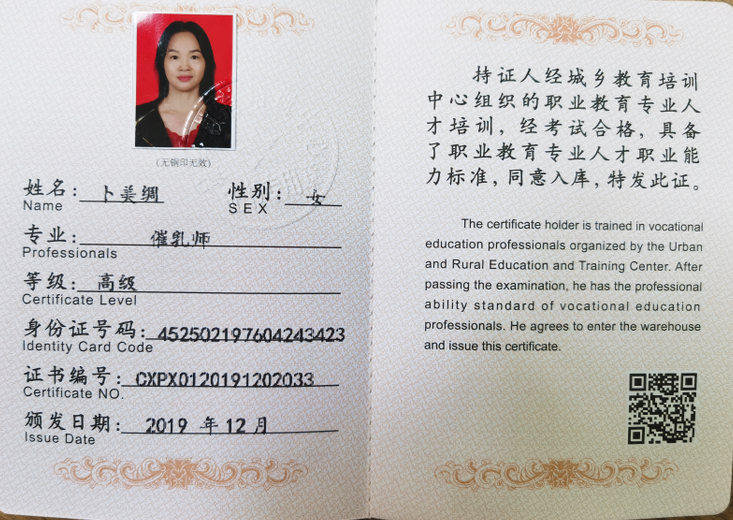 (无钢印无效)
姓名: 卜美绸 性别: 女
Name SEX
专业: 催乳师
Professionals
等级: 高级
Certificate Level
身份证号码: 452502197604243423
Identity Card Code
证书编号: CXPX0120191202033
Certificate NO.
颁发日期: 2019 年 12 月
Issue Date
持证人经城乡教育培训
中心组织的职业教育专业人
才培训，经考试合格，具备
了职业教育专业人才职业能
力标准，同意入库，特发此证。
The certificate holder is trained in vocational
education professionals organized by the Urban
and Rural Education and Training Center. After
passing the examination, he has the professional
ability standard of vocational education
professionals. He agrees to enter the warehouse
and issue this certificate.